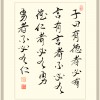 子曰有德者必有
言有言者不必有
德仁者必有勇
勇者不必有仁